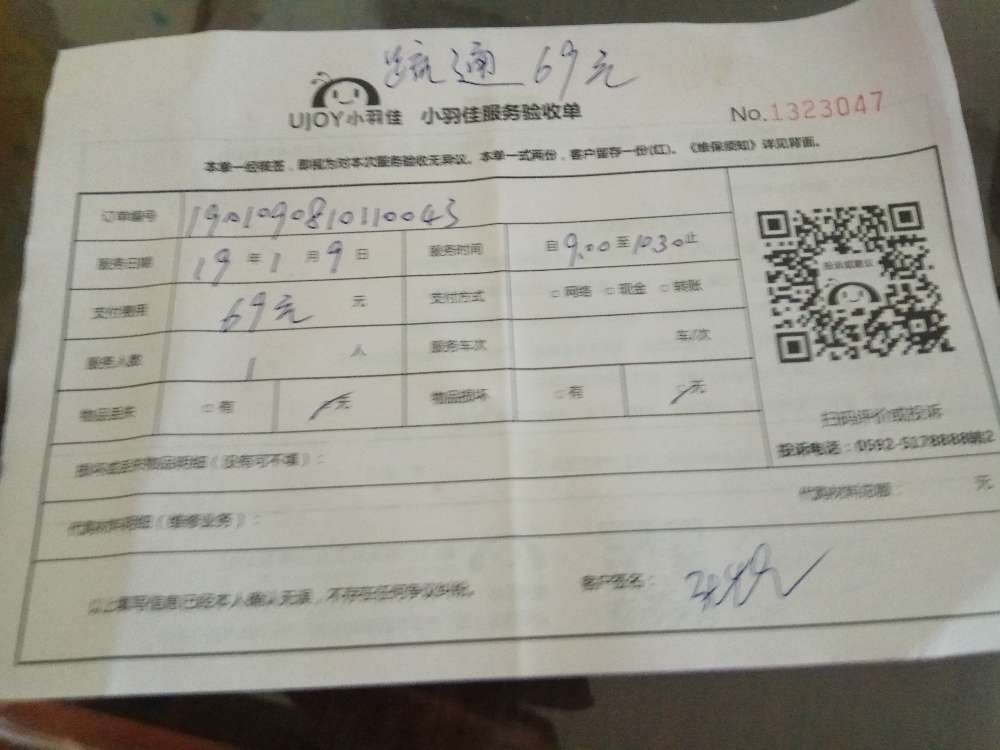 疏通 69元
UJOY小羽佳 小羽佳服务验收单 No.1323047
本单一经接签，即视为对本次服务验收无异议。本单一式两份，客户留存一份(红)。《维保须知》详见背面。
订单编号 1901090810110043
服务日期 19年1月9日 服务时间 自9:00至10:30止
支付费用 69元 元 支付方式 □网络 □现金 □转账
服务人数 1人 服务车次 车/次
物品丢失 □有 无 物品损坏 □有 无
投诉或建议
扫码评价或投诉
投诉电话：0592-5178888转2
损坏或丢失物品明细（没有可不填）：
代购材料明细（维修业务）： 代购材料总额： 元
以上填写信息已经本人确认无误，不存在任何争议纠纷。 客户签名：